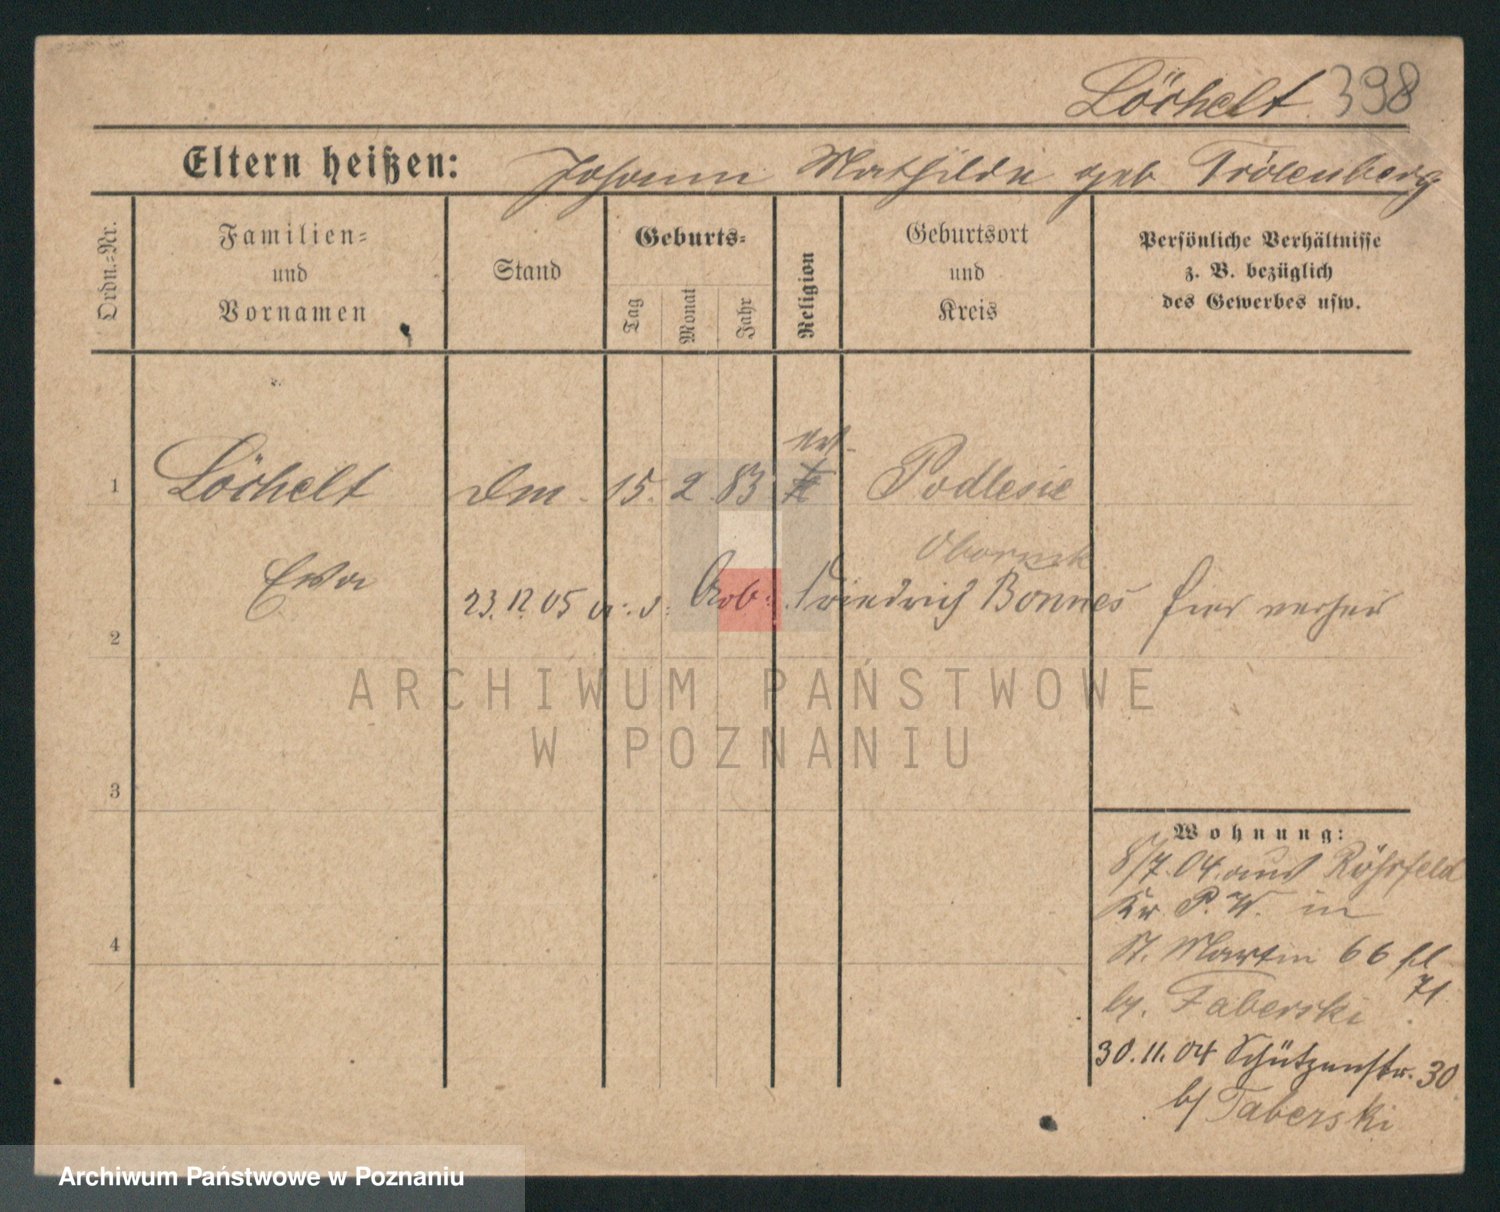 Löchelt 398
Eltern heißen: Johann Mathilde geb
Ordn.-Nr.
Familien-
und
Vornamen
Stand
Geburts-
Tag
Monat
Jahr
Religion
Geburtsort
und
Kreis
Persönliche Verhältnisse
z. B. bezüglich
des Gewerbes usw.
ev.
1 Löchelt 15. 2 83 Podlesie
Obornik
Ewa
23.12.05 Arb: Friedrich Bonnes hier verheir
2
ARCHIWUM PAŃSTWOWE
W POZNANIU
3
4
Wohnung:
8/7.04. aus Röhrfeld
Kr P. W. in
St. Martin 66
71.
by. Taberski
30.11.04 Schützenstr. 30
b/ Taberski
Archiwum Państwowe w Poznaniu